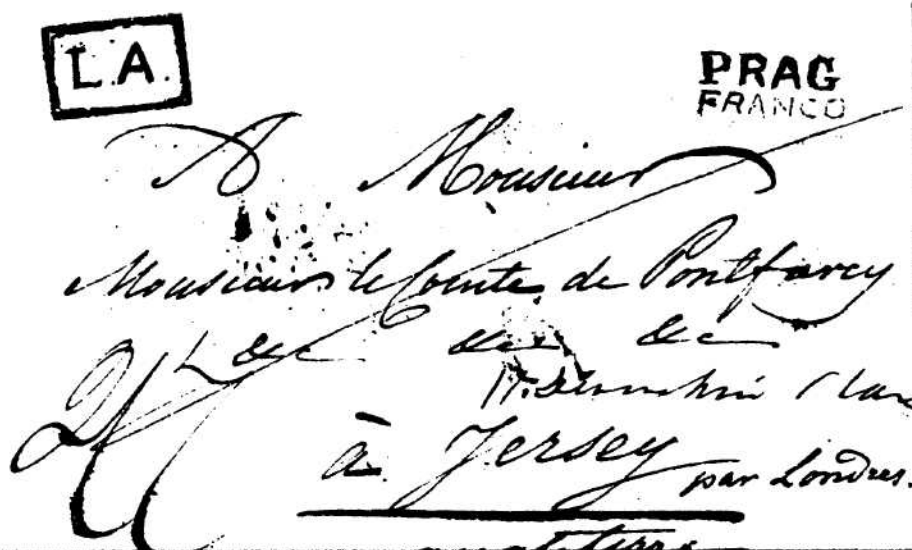 L.A.
PRAG
FRANCO
A Monsieur
Monsieur le Comte de Pontfarcy
&c &c &c
à Jersey par Londres.